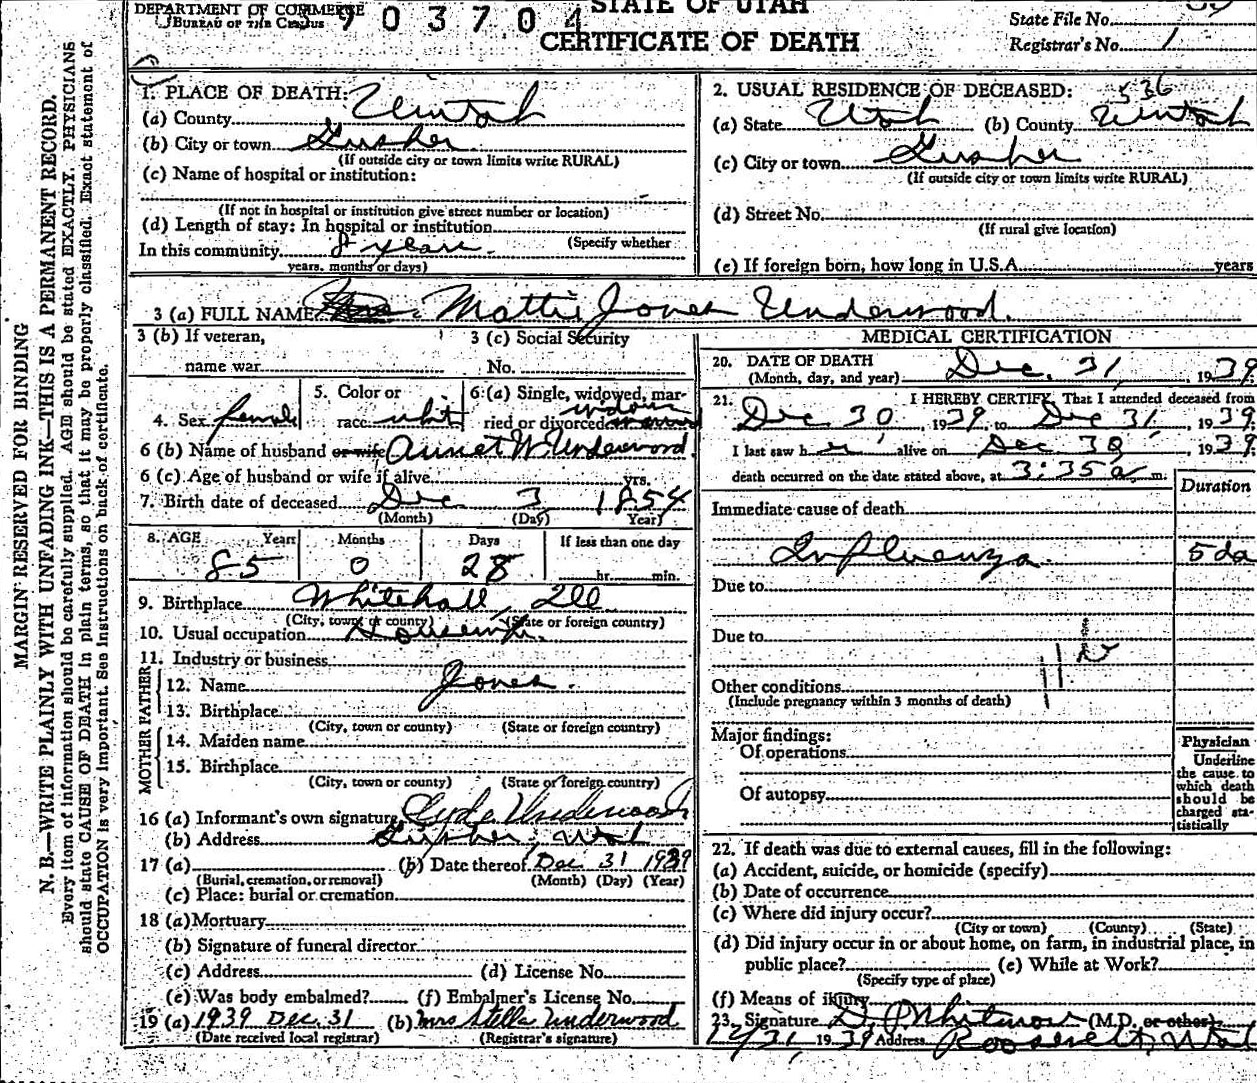 DEPARTMENT OF COMMERCE
BUREAU OF THE CENSUS
3903704
STATE OF UTAH
CERTIFICATE OF DEATH
State File No.
Registrar's No. 1
MARGIN RESERVED FOR BINDING
N. B.—WRITE PLAINLY WITH UNFADING INK—THIS IS A PERMANENT RECORD.
Every item of information should be carefully supplied. AGE should be stated EXACTLY. PHYSICIANS
should state CAUSE OF DEATH in plain terms, so that it may be properly classified. Exact statement of
OCCUPATION is very important. See instructions on back of certificate.
1. PLACE OF DEATH:
(a) County Uintah
(b) City or town Gusher
(If outside city or town limits write RURAL)
(c) Name of hospital or institution:
(If not in hospital or institution give street number or location)
(d) Length of stay: In hospital or institution
(Specify whether
In this community 8 years
years, months or days)
2. USUAL RESIDENCE OF DECEASED: 536
(a) State Utah (b) County Uintah
(c) City or town Gusher
(If outside city or town limits write RURAL)
(d) Street No.
(If rural give location)
(e) If foreign born, how long in U.S.A. years
3 (a) FULL NAME Mattie Jones Underwood.
3 (b) If veteran,
name war
3 (c) Social Security
No.
4. Sex female
5. Color or
race whit
6 (a) Single, widowed, mar-
ried or divorced widow
6 (b) Name of husband or wife W. Underwood.
6 (c) Age of husband or wife if alive yrs.
7. Birth date of deceased Dec 3 1854
(Month) (Day) (Year)
8. AGE Years Months Days If less than one day
85 0 28 hr. min.
9. Birthplace Whitehall, Ill
(City, town or county) (State or foreign country)
10. Usual occupation Housewife.
11. Industry or business
FATHER
12. Name Jones.
13. Birthplace
(City, town or county) (State or foreign country)
MOTHER
14. Maiden name
15. Birthplace
(City, town or county) (State or foreign country)
16 (a) Informant's own signature Clyde Underwood
(b) Address Gusher, Utah
17 (a) (b) Date thereof Dec 31 1939
(Burial, cremation, or removal) (Month) (Day) (Year)
(c) Place: burial or cremation
18 (a) Mortuary
(b) Signature of funeral director
(c) Address (d) License No.
(e) Was body embalmed? (f) Embalmer's License No.
19 (a) 1939 Dec. 31 (b) Mrs Stella Underwood.
(Date received local registrar) (Registrar's signature)
MEDICAL CERTIFICATION
20. DATE OF DEATH
(Month, day, and year) Dec. 31, 1939.
21. I HEREBY CERTIFY, That I attended deceased from
Dec 30, 1939, to Dec 31, 1939.
I last saw her alive on Dec 30, 1939.
death occurred on the date stated above, at 3:35 a m.
Duration
Immediate cause of death
Influenza 5 da
Due to
Due to
Other conditions
(Include pregnancy within 3 months of death)
Major findings:
Of operations
Of autopsy
Physician
Underline
the cause to
which death
should be
charged sta-
tistically
22. If death was due to external causes, fill in the following:
(a) Accident, suicide, or homicide (specify)
(b) Date of occurrence
(c) Where did injury occur?
(City or town) (County) (State)
(d) Did injury occur in or about home, on farm, in industrial place, in
public place? (e) While at Work?
(Specify type of place)
(f) Means of injury
23. Signature D. P. Whitmore (M.D. or other)
12/31, 1939 Address Roosevelt, Utah